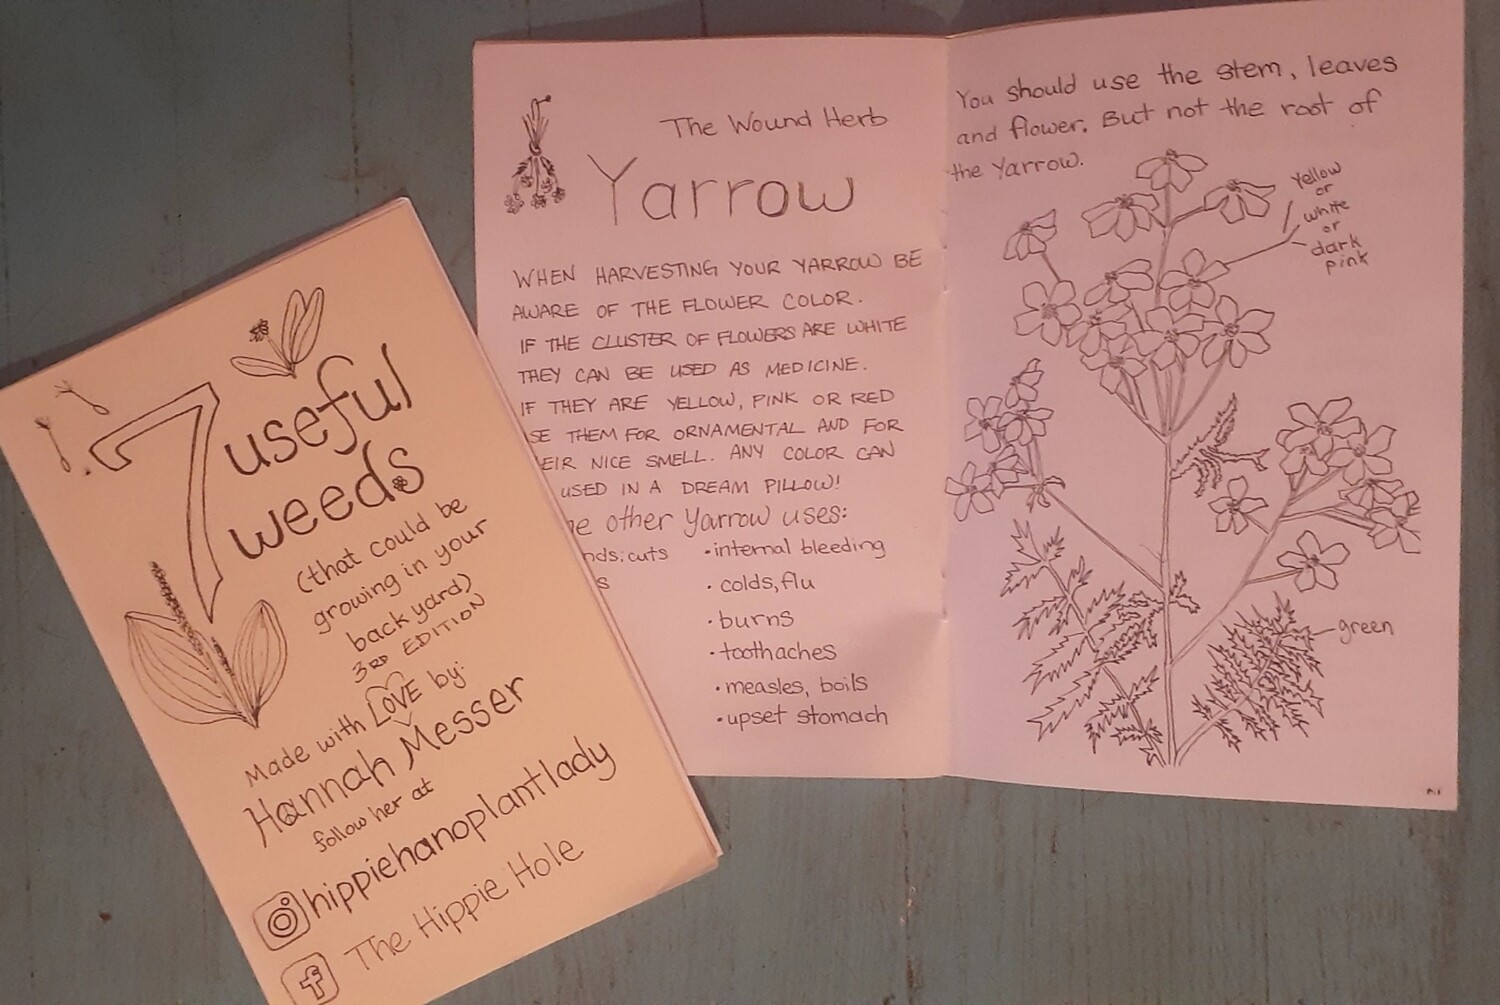 7 useful
weeds
(that could be
growing in your
back yard)
3RD EDITION
Made with LOVE by:
Hannah Messer
follow her at
hippiehanoplantlady
The Hippie Hole
The Wound Herb
Yarrow
WHEN HARVESTING YOUR YARROW BE
AWARE OF THE FLOWER COLOR.
IF THE CLUSTER OF FLOWERS ARE WHITE
THEY CAN BE USED AS MEDICINE.
IF THEY ARE YELLOW, PINK OR RED
SE THEM FOR ORNAMENTAL AND FOR
EIR NICE SMELL. ANY COLOR CAN
USED IN A DREAM PILLOW!
e other Yarrow uses:
nds; cuts
s
• internal bleeding
• colds, flu
• burns
• toothaches
• measles, boils
• upset stomach
You should use the stem, leaves
and flower. But not the root of
the Yarrow.
Yellow
or
white
or
dark
pink
green